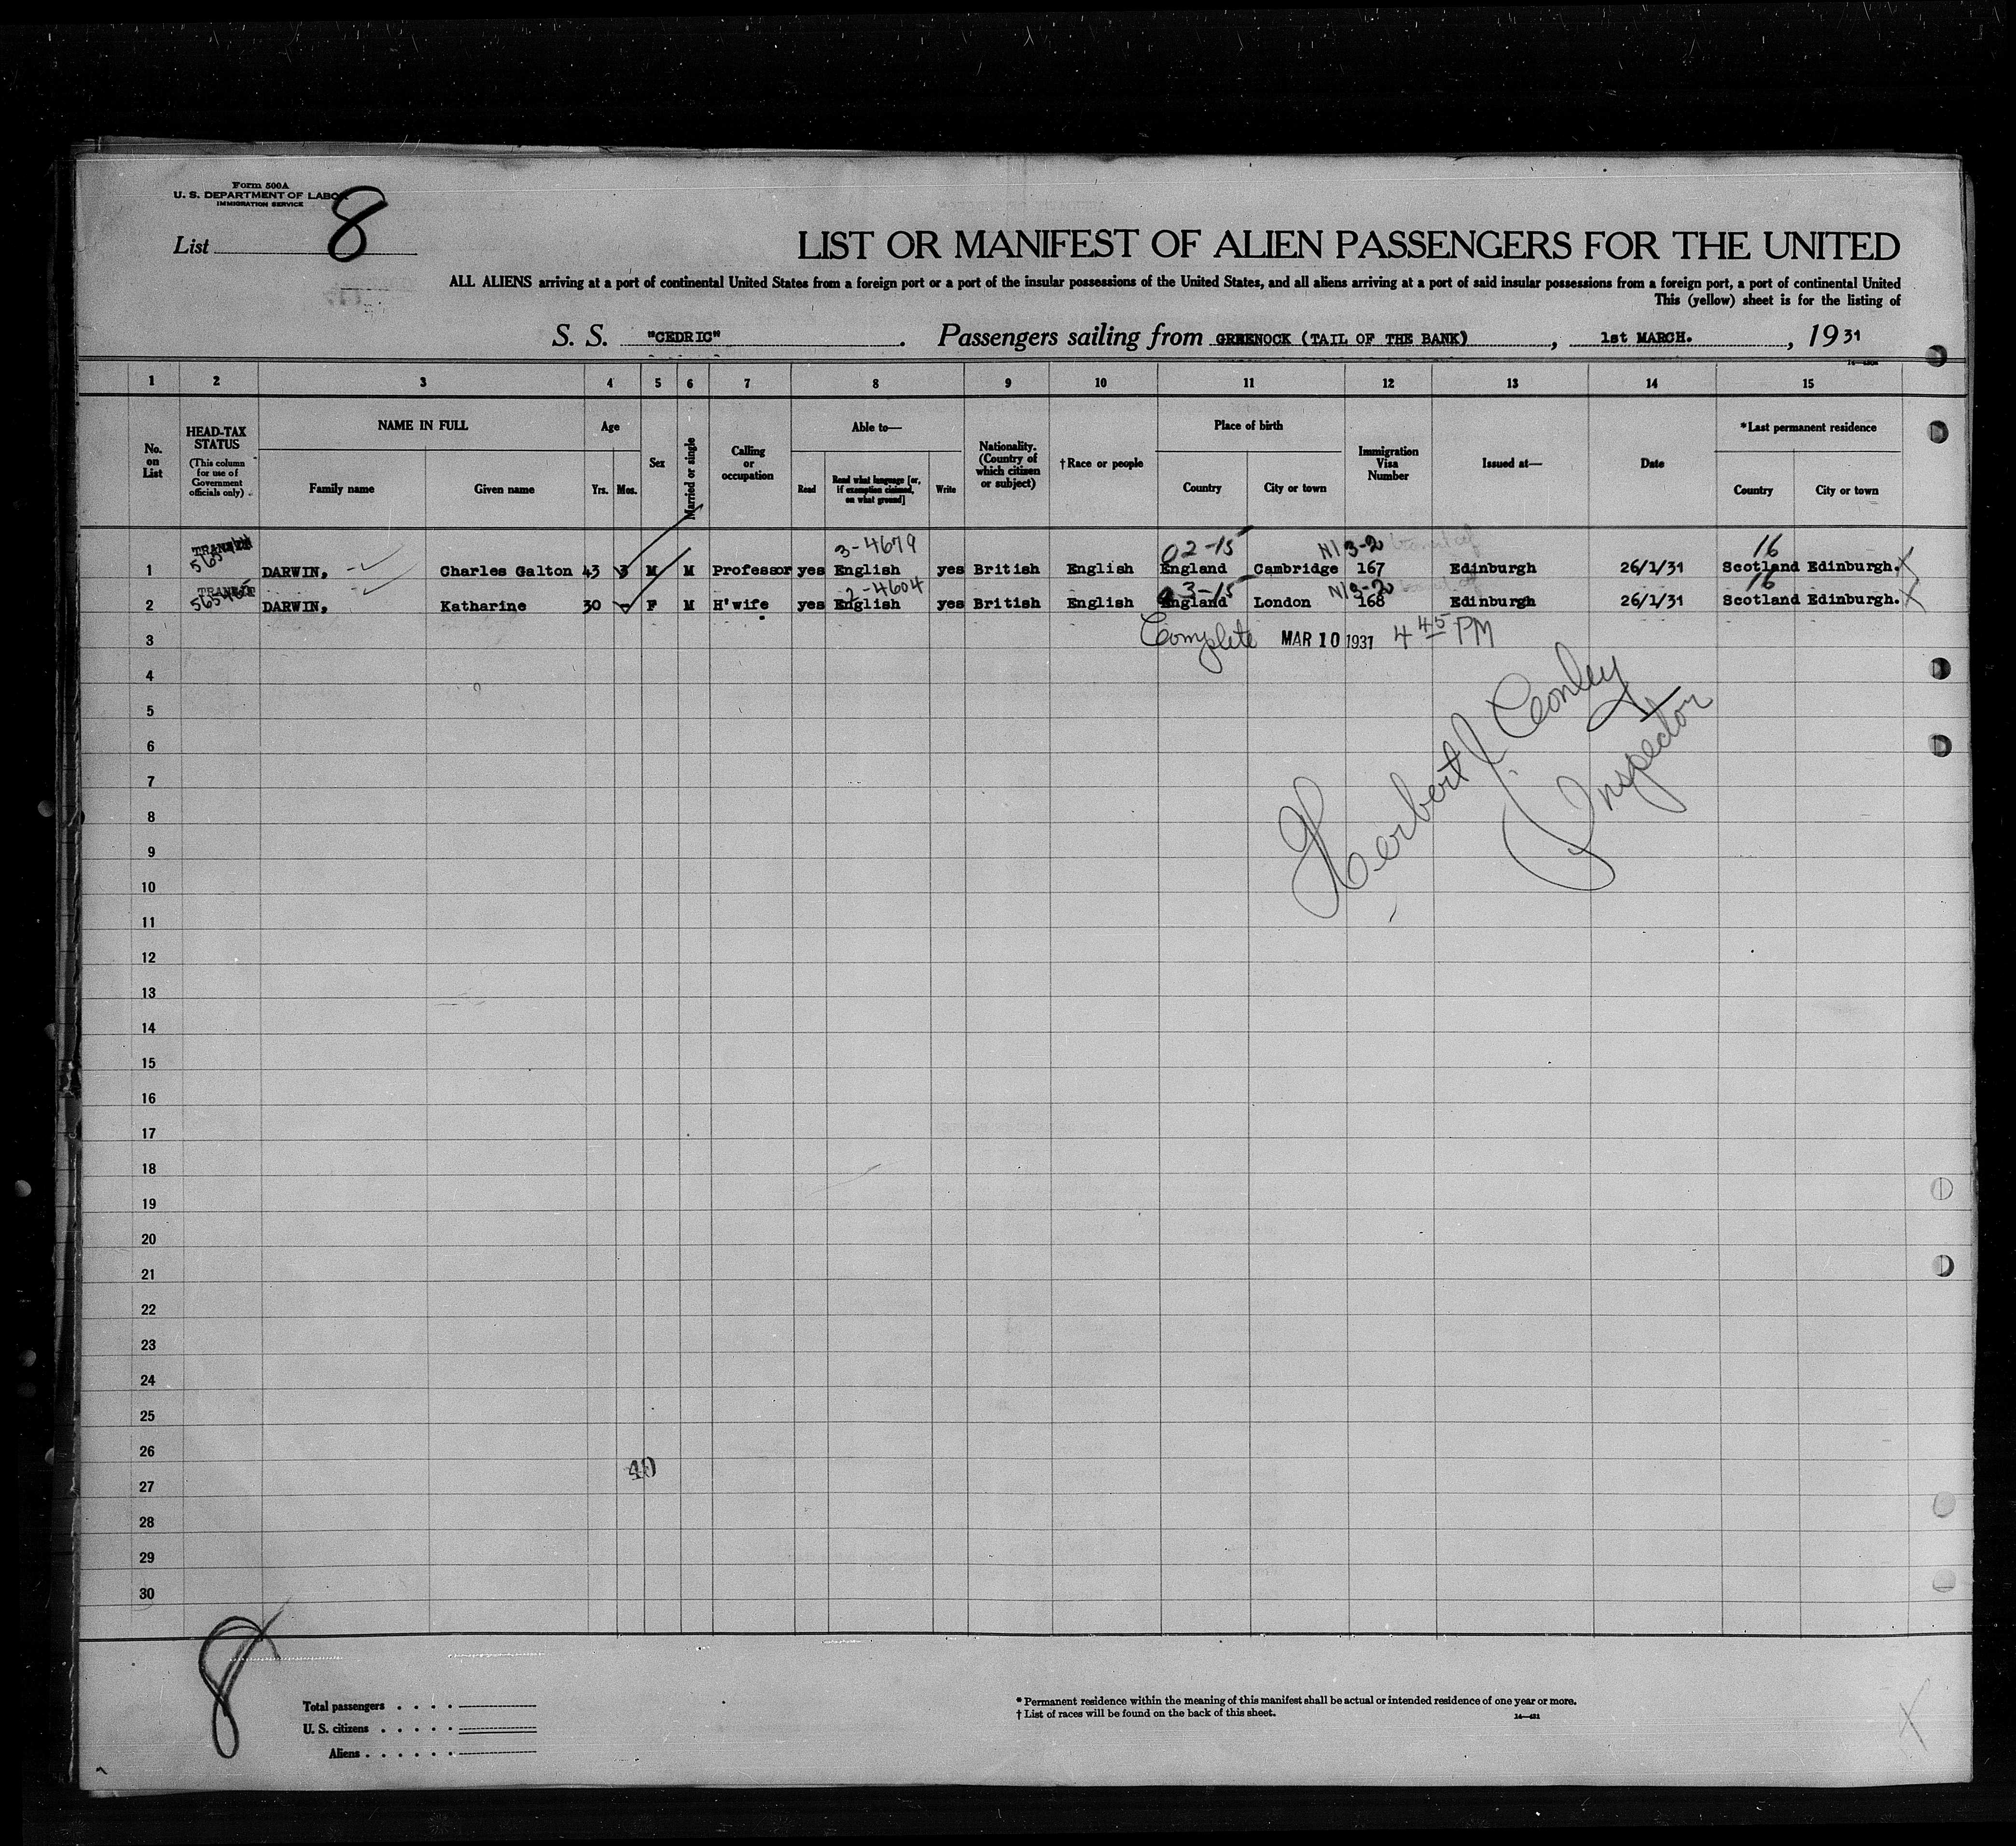 Form 500A
U. S. DEPARTMENT OF LABOR
IMMIGRATION SERVICE
List 8
LIST OR MANIFEST OF ALIEN PASSENGERS FOR THE UNITED
ALL ALIENS arriving at a port of continental United States from a foreign port or a port of the insular possessions of the United States, and all aliens arriving at a port of said insular possessions from a foreign port, a port of continental United
This (yellow) sheet is for the listing of
S. S. "CEDRIC". Passengers sailing from GREENOCK (TAIL OF THE BANK), 1st MARCH., 1931
1 2 3 4 5 6 7 8 9 10 11 12 13 14 15
No. on List
HEAD-TAX STATUS
(This column for use of Government officials only)
NAME IN FULL
Family name
Given name
Age
Yrs. Mos.
Sex
Married or single
Calling or occupation
Able to—
Read
Read what language [or, if exemption claimed, on what ground]
Write
Nationality. (Country of which citizen or subject)
†Race or people
Place of birth
Country
City or town
Immigration Visa Number
Issued at—
Date
*Last permanent residence
Country
City or town
TRANSIT 3-4679 02-15 3-2 16
1 DARWIN, Charles Galton 43 3 M M Professor yes English yes British English England Cambridge 167 Edinburgh 26/1/31 Scotland Edinburgh.
TRANSIT 2-4604 3-15 3-2 16
2 DARWIN, Katharine 30 - F M H'wife yes English yes British English England London 168 Edinburgh 26/1/31 Scotland Edinburgh.
3 Complete MAR 10 1931 4 45 PM
4
5
Herbert J. Conley
Inspector
6
7
8
9
10
11
12
13
14
15
16
17
18
19
20
21
22
23
24
25
26
40
27
28
29
30
8
Total passengers . . . .
U. S. citizens . . . . .
Aliens . . . . . .
* Permanent residence within the meaning of this manifest shall be actual or intended residence of one year or more.
† List of races will be found on the back of this sheet.